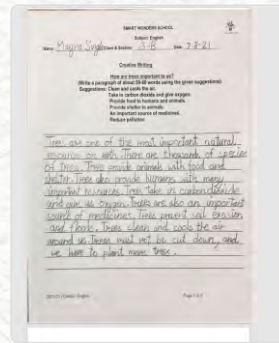 SMART WONDERS SCHOOL
Subject: English
Name: Mayra Singla Class & Section: 3-B Date: 7-8-21
Creative Writing
How are trees important to us?
(Write a paragraph of about 50-60 words using the given suggestions)
Suggestions: Clean and cools the air.
Take in carbon dioxide and give oxygen.
Provide food to humans and animals.
Provide shelter to animals.
An important source of medicines.
Reduce pollution
Trees are one of the most important natural
resource on earth. There are thousands of species
of trees. Trees provide animals with food and
shelter. Trees also provide humans with many
important resources. Trees take in carbondioxide
and give us oxygen. Trees are also an important
source of medicines. Trees prevent soil erosion
and floods. Trees clean and cools the air
around us. Trees must not be cut down, and
we have to plant more trees.
English
Page 1 of